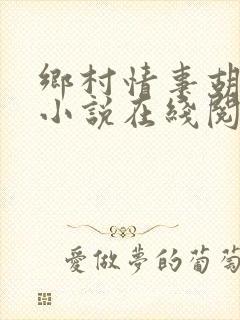 鄉村情妻胡
小説在綫閱
愛做夢的葡萄